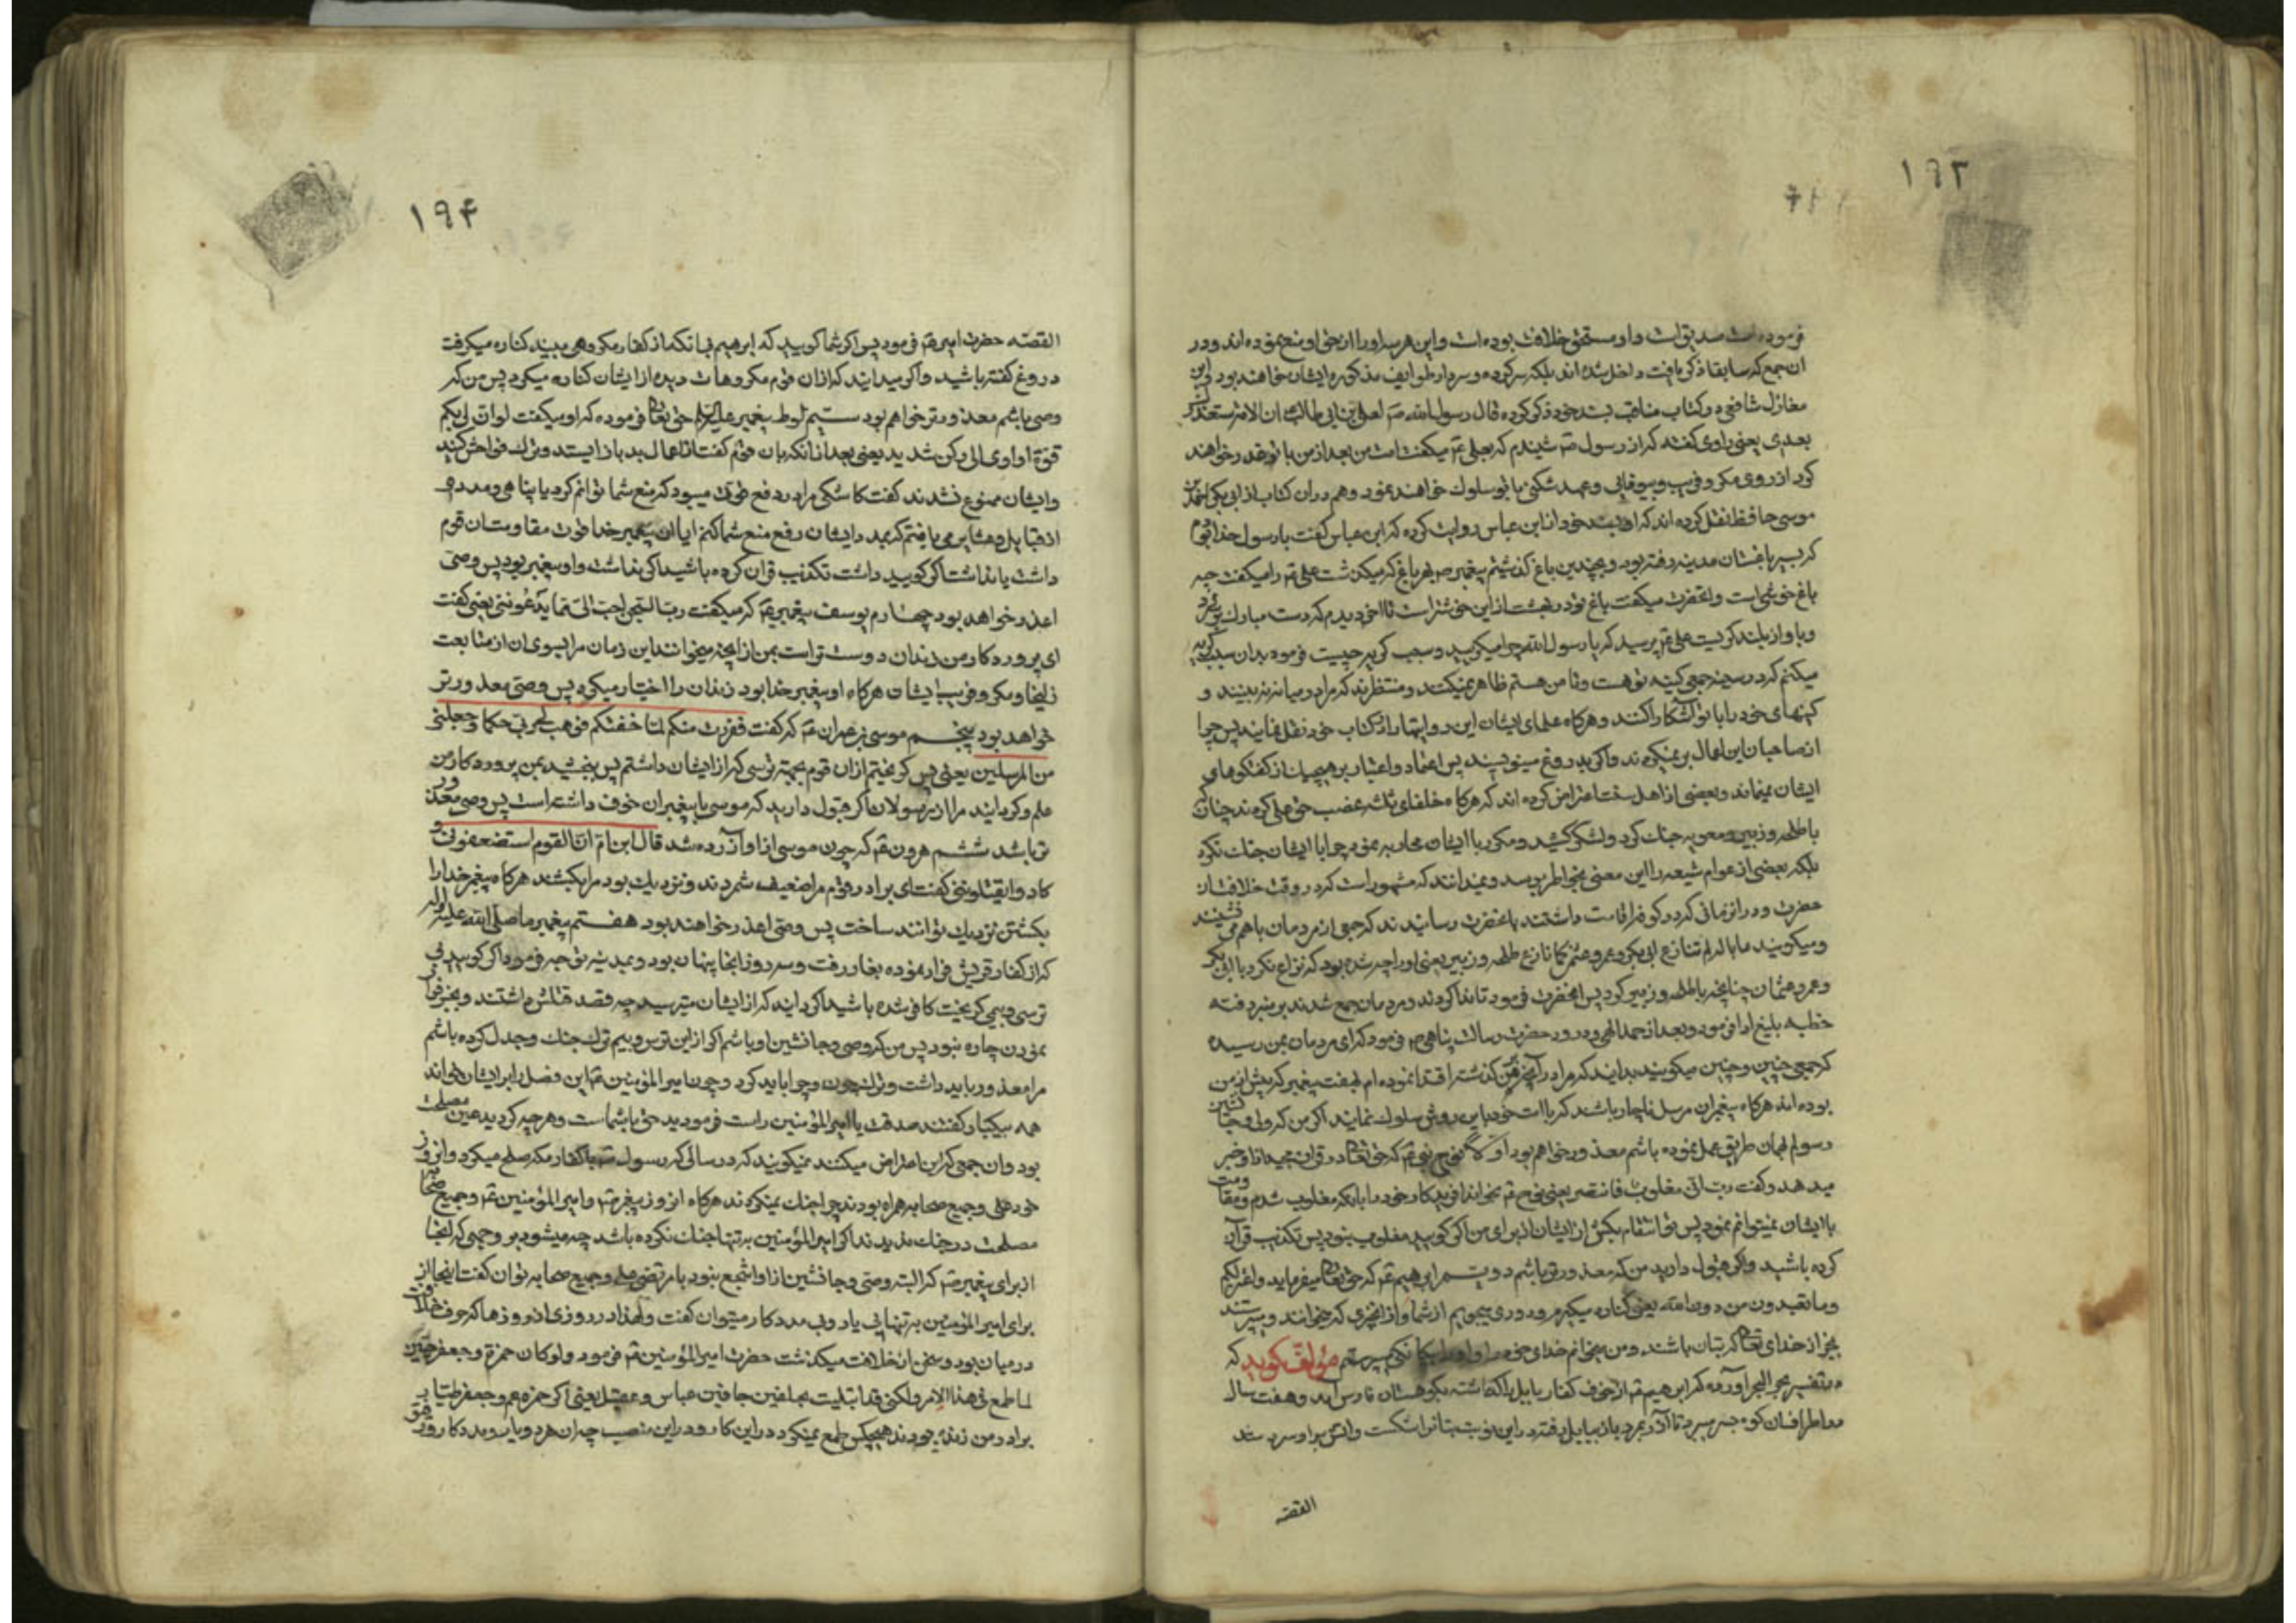 ۱۹۳
فرموده است صدیق است و او مستحق خلافت بوده است و این هر سه او را از حق او منع نموده اند و در
ان جمع که سابقا ذکر یافت داخل شده اند بلکه سرکرده و سردار طوایف مذکوره ایشان خواهند بود ابن
مغازل شافعی در کتاب مناقب بسند خود ذکر کرده قال رسول الله صم لعلی بن ابی طالب ان الامة ستغدر بک
بعدی یعنی راوی گفته که از رسول صم شنیدم که بعلی عم میکفت امت من بعد از من با تو غدر خواهند
کرد از روی مکر و فریب و بیوفایی و عهد شکنی با تو سلوک خواهند نمود و هم در ان کتاب از ابی بکر احمد بن
موسی حافظ نقل کرده اند که او بسند خود از ابن عباس روایت کرده که ابن عباس کفت با رسول خدا
که بسیر باغستان مدینه رفته بود و بچندین باغ گذشتیم پیغمبر صم بهر باغ که میکذشت علی عم را میکفت چه
باغ خوشی است و انحضرت میکفت باغ تو در بهشت از این خوشتر است تا اخر دیدم که دست مبارک بر سر
و باواز بلند کریست علی عم پرسید که یا رسول الله چرا میکریید و سبب کریه چیست فرمود بدان سبب کریه
میکنم که در سینه جمعی کینه تو هست و تا من هستم ظاهر نمیکنند و منتظرند که مرا در میانه نبینند و
کینهای خود را با تو آشکارا کنند و هرکاه علمای ایشان این روایتها را از کتاب خود نقل نمایند پس چرا
از صاحبان این اعمال بر نمیکردند و اکر بدروغ مینویسند پس اعتماد و اعتبار بر هیچیک از کفتکوهای
ایشان نمیماند و بعضی از اهل سنت اعتراض کرده اند که هرکاه خلفای ثلثه غصب حق علی کردند چنان که
با طلحه و زبیر و معویه جنک کرد و لشکر کشید و مکرر با ایشان محاربه نمود چرا با ایشان جنک نکرد
بلکه بعضی از عوام شیعه را این معنی بخاطر میرسد و نمیدانند که مشهور است که در وقت خلافت ان
حضرت و در زمانی که در کوفه اقامت داشتند بانحضرت رسانیدند که جمعی از مردمان باهم می نشینند
و میکویند ما باله لم تنازع ابی بکر و عمر و عثمن کما نازع طلحه و زبیر یعنی او را چه شده بود که نزاع نکرد با ابی بکر
و عمر و عثمان چنانچه با طلحه و زبیر کرد پس انحضرت فرمود تا ندا کردند و مردمان جمع شدند بر منبر رفته
خطبه بلیغ ادا فرمود و بعد از حمد الهی و درود حضرت رسالت پناهی صم فرمود که ای مردمان بمن رسیده
که جمعی چنین و چنین میکویند بدانید که مرا در آنچه از من کذشته اقتدا نموده ام بهفت پیغمبر که پیش از من
بوده اند هرکاه پیغمبران مرسل ناچار باشند که با امت خود باین روش سلوک نمایند اکر من که ولی و جانشین
رسولم بهمان طریق عمل نموده باشم معذور خواهم بود اول نوح نبی عم که حق تعالی در قران مجید از او خبر
میدهد و کفت رب انی مغلوب فانتصر یعنی نوح عم بخواند افریدکار خود را بانکه مغلوب شدم و مقاومت
با ایشان نمیتوانم نمود پس تو انتقام بکش از ایشان از برای من اکر کویید مغلوب نبود پس تکذیب قرآن
کرده باشید و اکر قبول دارید من که معذورتر باشم دویم ابرهیم عم که حق تعالی میفرماید و اعتزلکم
و ما تعبدون من دون الله یعنی کناره میکیرم و دوری میجویم از شما و از انچیزی که میخوانند و میپرستند
بجز از خدای تعالی که بتان باشند و من میخوانم خدای خود را و او را بیکانکی میپرستم مؤلف کوید که
در تفسیر بحر البحر آورده که ابرهیم عم از خوف کفار بابل را کذاشته بکوهستان فارس آمد و هفت سال
در اطراف ان کوه بسر میبرد تا آزر بمرد باز ببابل رفته در این نوبت بتانرا شکست و اتش براو سرد شد
القصه
۱۹۴
القصه حضرت امیر عم فرمود پس اکر شما کویید که ابرهیم بی آنکه از کفار مکروهی ببیند کناره میکرفت
دروغ کفته باشید و اکر میدانید که از ان قوم مکروهات دیده از ایشان کناره میکرد پس من که
وصی باشم معذورتر خواهم بود سیم لوط پیغمبر علیه السلام حق تعالی فرموده که او میکفت لو ان لی بکم
قوة او اوی الی رکن شدید یعنی بعد از انکه بان قوم کفت از اعمال بد باز ایستند و ترک فواحش کنند
و ایشان ممنوع نشدند کفت کاشکی مرا در دفع قوت میبود که منع شما توانم کرد یا پناهی و مددی
از قبایل و عشایر می یافتم که بمدد ایشان رفع منع شما کنم ایا ان پیغمبر خدا قوت مقاومت ان قوم
داشت یا نداشت اکر کویید داشت تکذیب قران کرده باشید اکر نداشت و او پیغمبر بود پس وصی
اعذر خواهد بود چهارم یوسف پیغمبر عم که میکفت رب السجن احب الی مما یدعوننی یعنی کفت
ای پروردکار من زندان دوست تر است بمن از انچه میخوانند این زمان مرا بسوی ان از متابعت
زلیخا و مکر و فریب ایشان هرکاه او پیغمبر خدا بود زندان را اختیار میکرد پس وصی معذورتر
خواهد بود پنجم موسی بن عمران عم که کفت ففررت منکم لما خفتکم فوهب لی ربی حکما و جعلنی
من المرسلین یعنی پس کریختم ازان قوم بجهة ترسی که از ایشان داشتم پس بخشید بمن پروردکار من
علم و کردانید مرا از رسولان اکر قبول دارید که موسی با پیغمبران خوف داشته است پس وصی معذور
تر باشد ششم هرون عم که چون موسی از او آزرده شد قال ابن ام ان القوم استضعفونی و
کادوا یقتلوننی کفت ای برادر قوم مرا ضعیف شمردند و نزدیک بود مرا بکشند هرکاه پیغمبر خدا را
بکشتن نزدیک توانند ساخت پس وصی اعذر خواهند بود هفتم پیغمبر ما صلی الله علیه و اله
که از کفار قریش فرار نموده بغار رفت و سه روز انجا پنهان بود و بمدینه توجه فرمود اکر کویید بی
ترسی و بیمی کریخت کافر شده باشید اکر دانید که از ایشان میترسید چه قصد قتلش داشتند و بجز فرار
نمودن چاره نبود پس من که وصی و جانشین او باشم اکر از این ترس و بیم ترک جنک و جدل کرده باشم
مرا معذور باید داشت و ترک چون و چرا باید کرد و چون امیر المؤمنین عم این فصل را بر ایشان خواند
همه بیکبار کفتند صدقت یا امیر المؤمنین راست فرمودید حق با شماست و هرچه کردید عین مصلحت
بود و ان جمعی که این اعتراض میکنند نمیکویند که در سالی که رسول صم با کفار مکه صلح میکرد و ان روز
خود علی و جمیع صحابه همراه بودند چرا جنک نمیکردند هرکاه ان روز پیغمبر صم و امیر المؤمنین عم و جمیع صحابه
مصلحت در جنک ندیدند اکر امیر المؤمنین به تنها جنک نکرده باشد چه میشود بر وجهی که انجا
از برای پیغمبر صم که البته وصی و جانشین از او اشجع نبود با مرتضی علی و جمیع صحابه توان کفت اینجا از
برای امیر المؤمنین به تنهایی یار و بی مددکار میتوان کفت و لهذا در روزی از روزها که حرف خلافت
در میان بود و سخن از خلافت میکذشت حضرت امیر المؤمنین عم فرمود و لو کان حمزة و جعفر حیین
لما طمع فی هذا الامر ولکنی قد ابتلیت بجلفین جافین عباس و عقیل یعنی اکر حمزه عم و جعفر طیار
برادر من زنده بودند هیچکس طمع نمیکرد در این کار و در این منصب چه ان هر دو یار و مددکار و